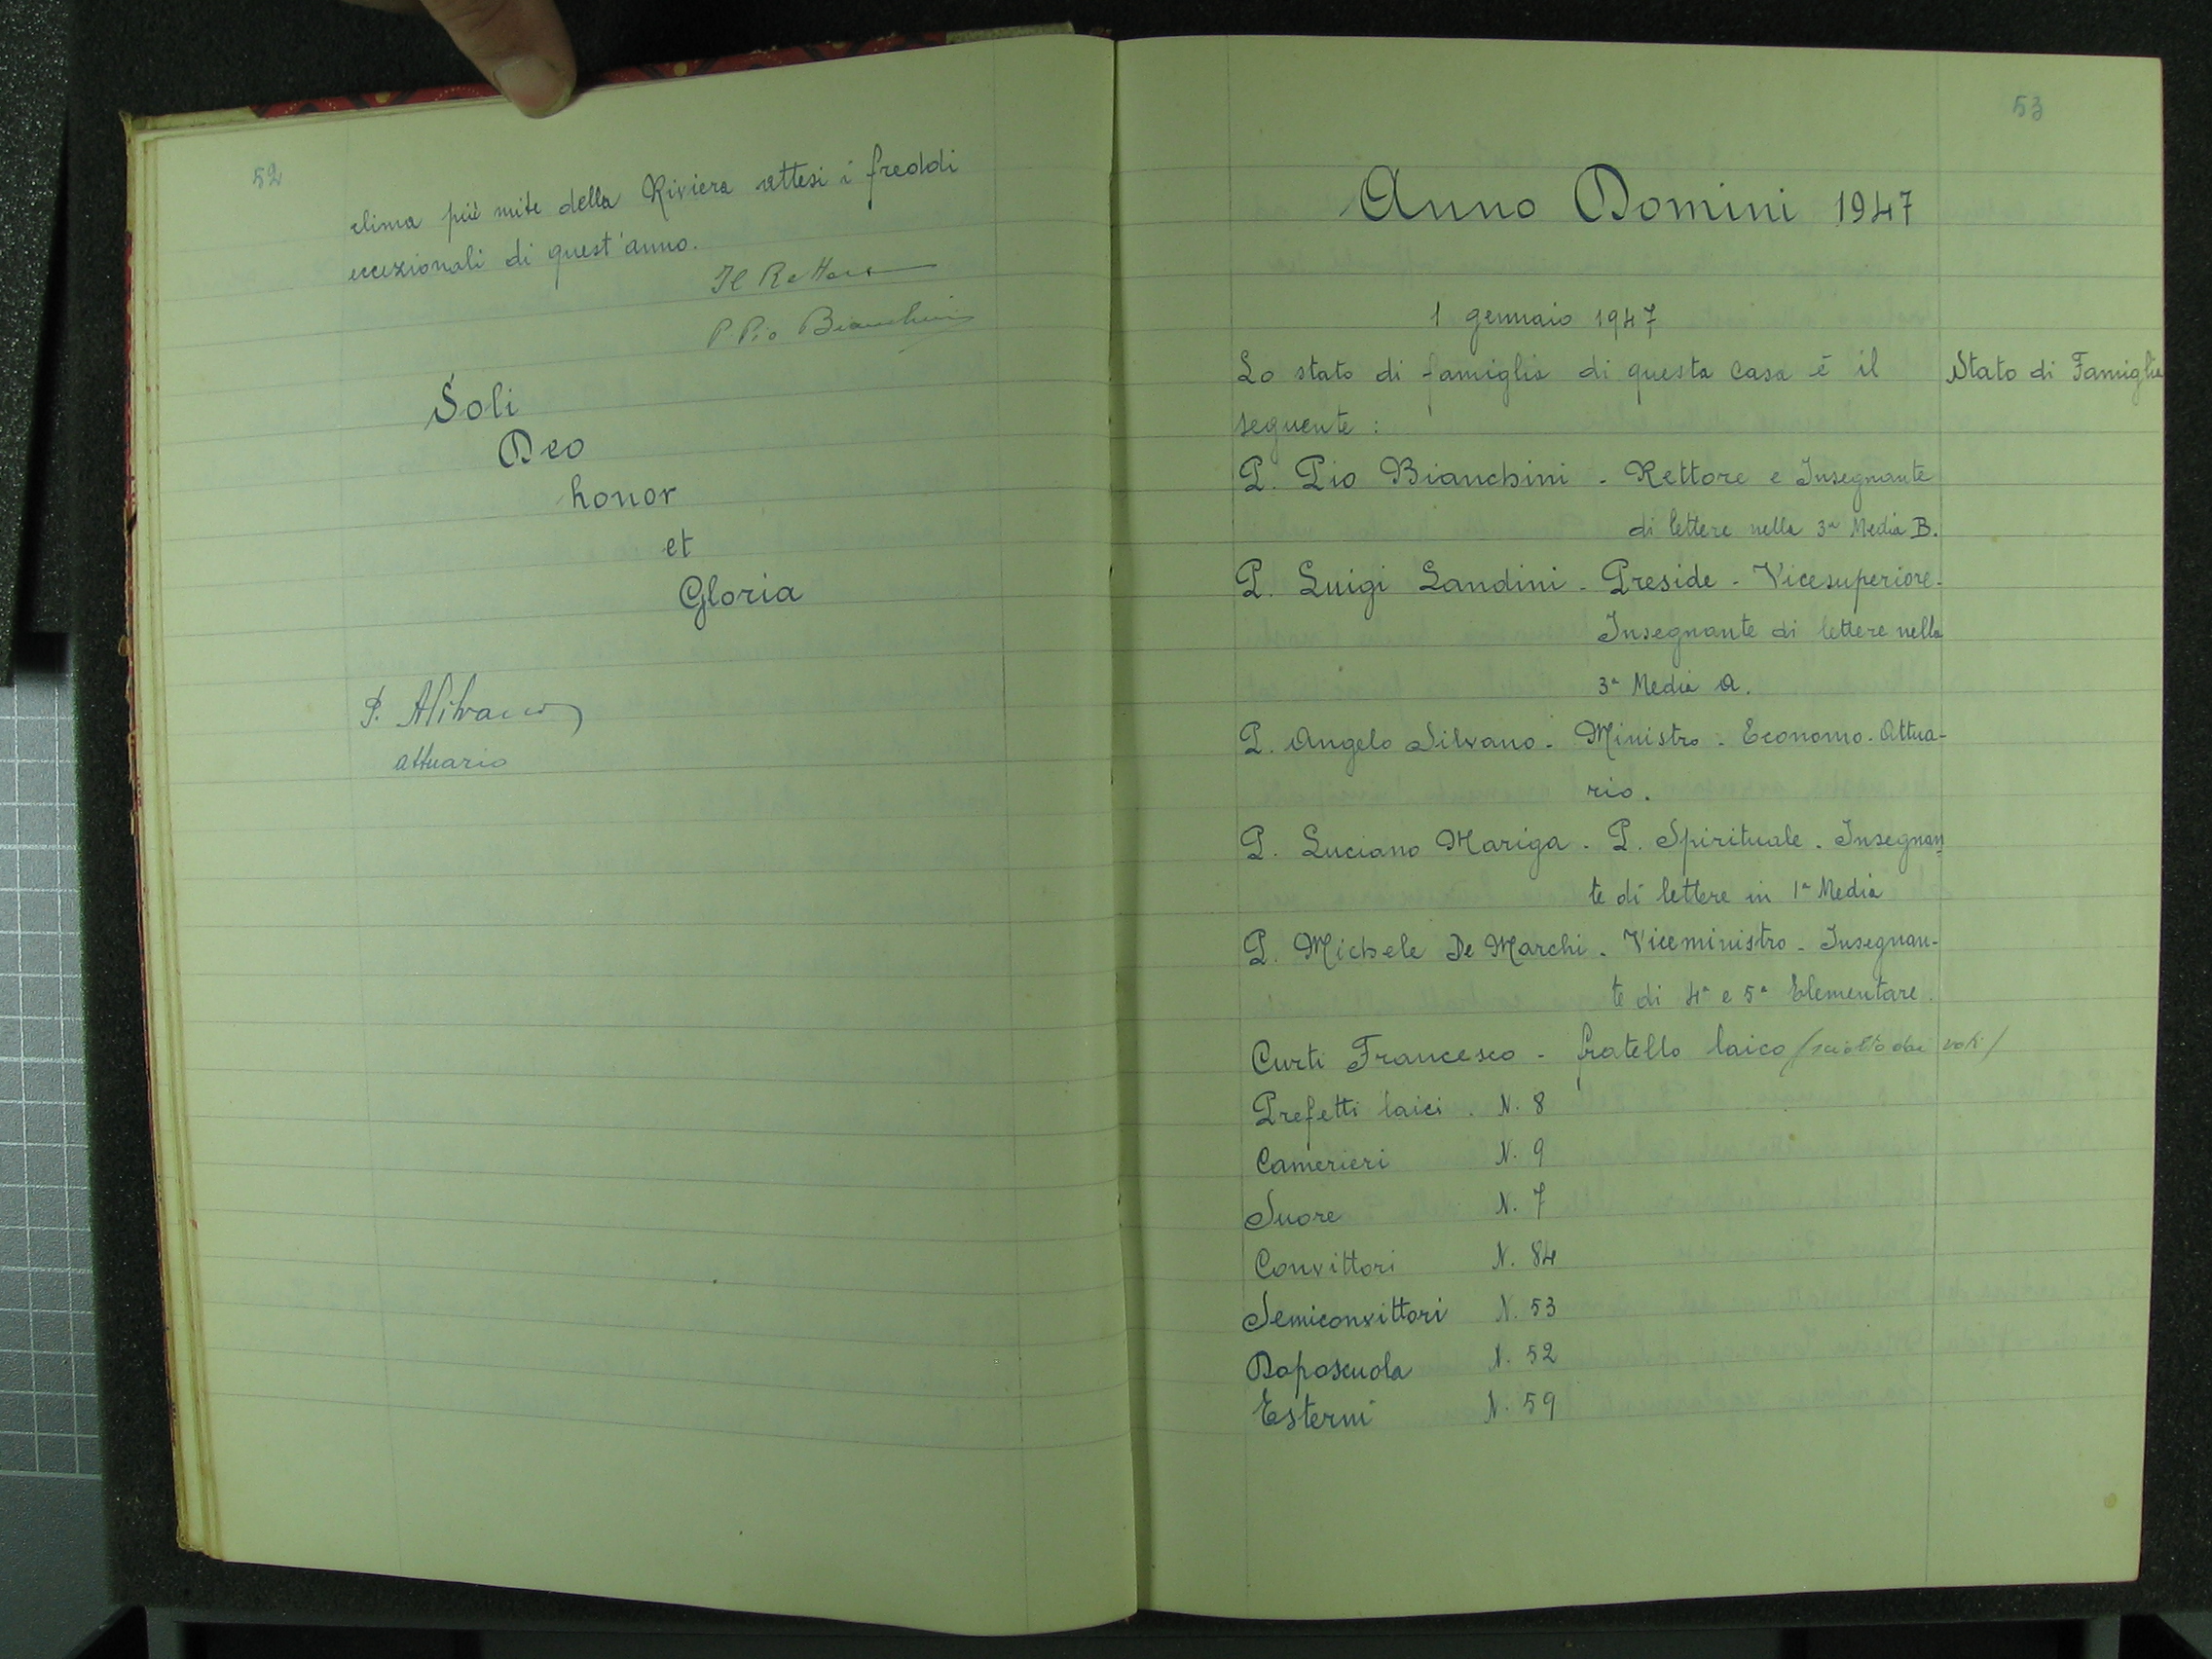 52
clima più mite della Riviera attesi i freddi
eccezionali di quest'anno.
Il Rettore
P Pio Bianchini
Soli
Deo
honor
et
Gloria
P. ASilvano
attuario
53
Anno Domini 1947
1 gennaio 1947
Lo stato di famiglia di questa casa è il
seguente :
Stato di Famiglia
P. Pio Bianchini - Rettore e Insegnante
di lettere nella 3ª Media B.
P. Luigi Landini - Preside - Vicesuperiore -
Insegnante di lettere nella
3ª Media A.
P. Angelo Silvano - Ministro - Economo - Attua-
rio.
P. Luciano Mariga - P. Spirituale - Insegnan
te di lettere in 1ª Media
P. Michele De Marchi - Viceministro - Insegnan-
te di 4ª e 5ª Elementare.
Curti Francesco - fratello laico (sciolto dai voti)
Prefetti laici . N. 8
Camerieri N. 9
Suore N. 7
Convittori N. 84
Semiconvittori N. 53
Doposcuola N. 52
Esterni N. 59